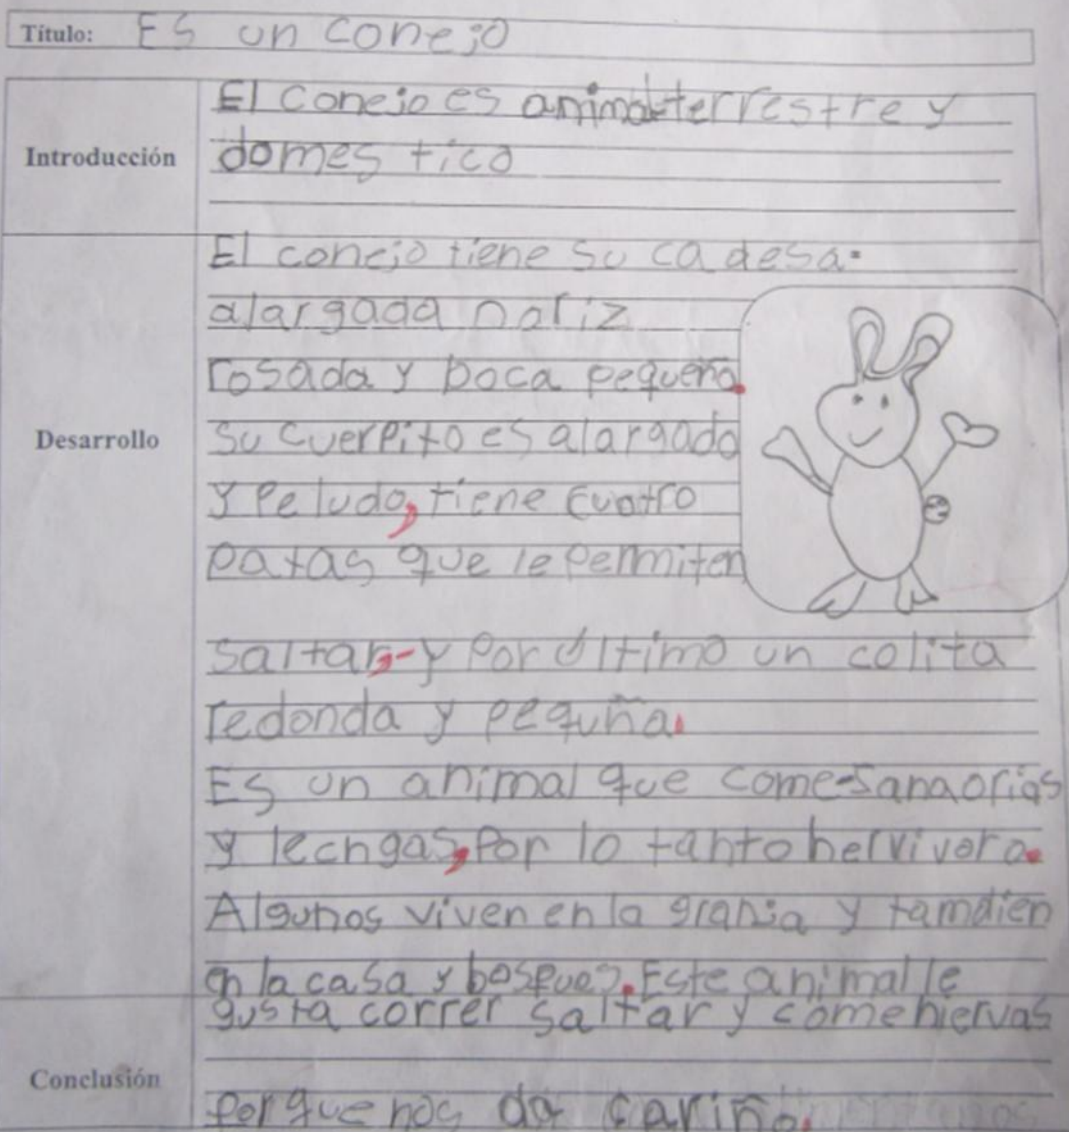 Título: Es un conejo
El conejo es animal terrestre y
Introducción
domes tico
El conejo tiene su ca desa.
alargada nariz
rosada y boca pequeña.
Desarrollo
su cuerpito es alargado
y peludo, tiene cuatro
patas que le permiten
saltar,-y por último un colita
redonda y pequña.
Es un animal que come sanaorias
y lechgas, por lo tanto hervivoro.
Algunos viven en la granja y tamdien
en la casa y bosques. Este animal le
gusta correr saltar y come hiervas
Conclusión
porque nos da cariño.